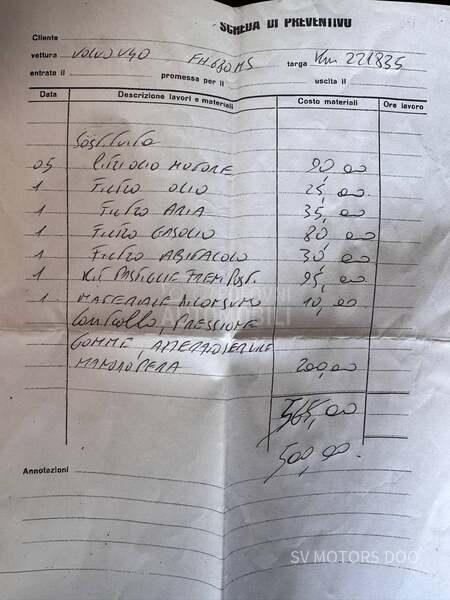 SCHEDA DI PREVENTIVO
Cliente
vettura VOLVO V40 FH680MS targa Km 221835
entrata il promessa per il uscita il
Data Descrizione lavori e materiali Costo materiali Ore lavoro
SOSTITUITO
05 LITRI OLIO MOTORE 90,00
1 FILTRO OLIO 25,00
1 FILTRO ARIA 35,00
1 FILTRO GASOLIO 80,00
1 FILTRO ABITACOLO 30,00
1 KIT PASTIGLIE FREM POST. 95,00
1 MATERIALE DI CONSUMO 10,00
CONTROLLO, PRESSIONE
GOMME,
MANODOPERA 200,00
565,00
500,00
Annotazioni
SV MOTORS DOO